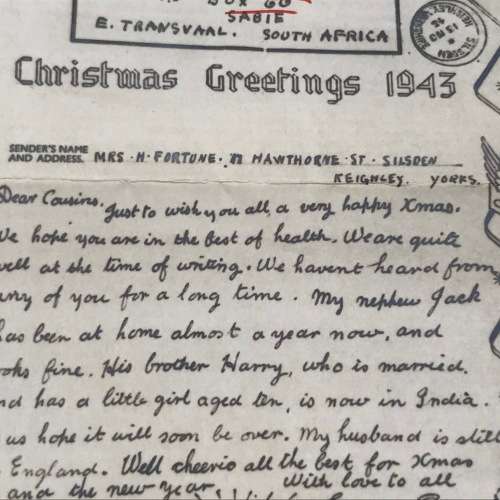 BOX 60
SABIE
E. TRANSVAAL. SOUTH AFRICA
SILSDEN
KEIGHLEY
Christmas Greetings 1943
SENDER'S NAME
AND ADDRESS. MRS. H. FORTUNE. 77 HAWTHORNE ST. SILSDEN
KEIGHLEY. YORKS.
Dear Cousins.
Just to wish you all, a very happy Xmas.
We hope you are in the best of health. We are quite
well at the time of writing. We havent heard from
any of you for a long time. My nephew Jack
has been at home almost a year now, and
looks fine. His brother Harry, who is married.
and has a little girl aged ten, is now in India.
us hope it will soon be over. My husband is still
England. Well cheerio all the best for Xmas
and the new year. With love to all